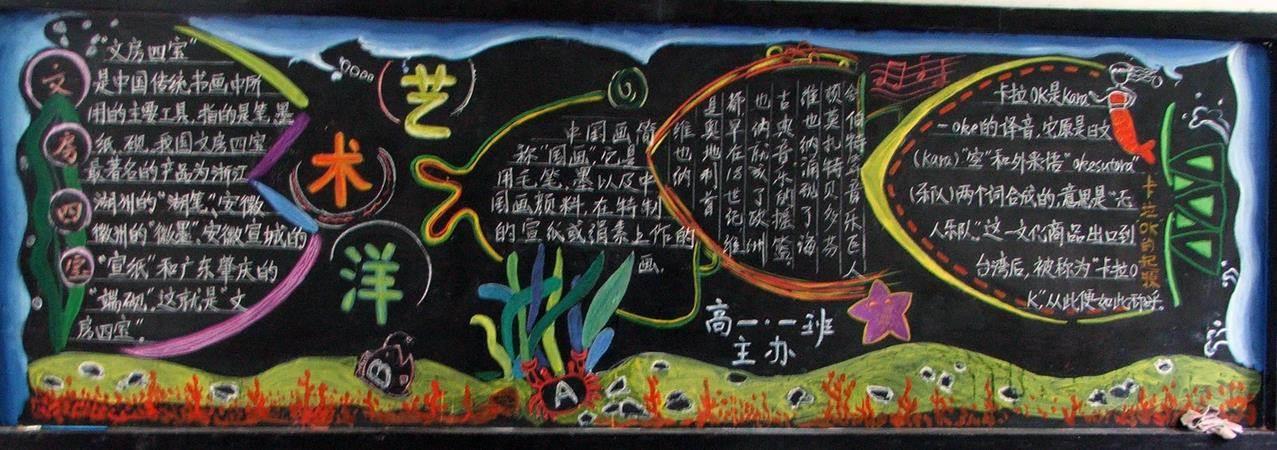 文房四宝
"文房四宝"
是中国传统书画中所
用的主要工具,指的是笔、墨
纸、砚,我国文房四宝
最著名的产品为浙江
湖州的"湖笔",安徽
徽州的"徽墨",安徽宣城的
"宣纸"和广东肇庆的
"端砚",这就是"文
房四宝"。
艺
术
洋
中国画简
称"国画",它是
用毛笔、墨以及中
国画颜料,在特制
的宣纸或绢素上作的
画。
维也纳
是奥地利首
都早在18世纪维
也纳就成了欧洲
古典音乐的摇篮。
维也纳涌现了海
顿莫扎特贝多芬
舍伯特等音乐巨人
高一·一班
主办
卡拉OK的起源
卡拉OK是Kara
-oke的译音,它原是日文
(Kara)"空"和外来语"okesutora"
(乐队)两个词合成的,意思是"无
人乐队,"这一文化商品出口到
台湾后,被称为"卡拉O
K"从此便如此称呼。
B
A